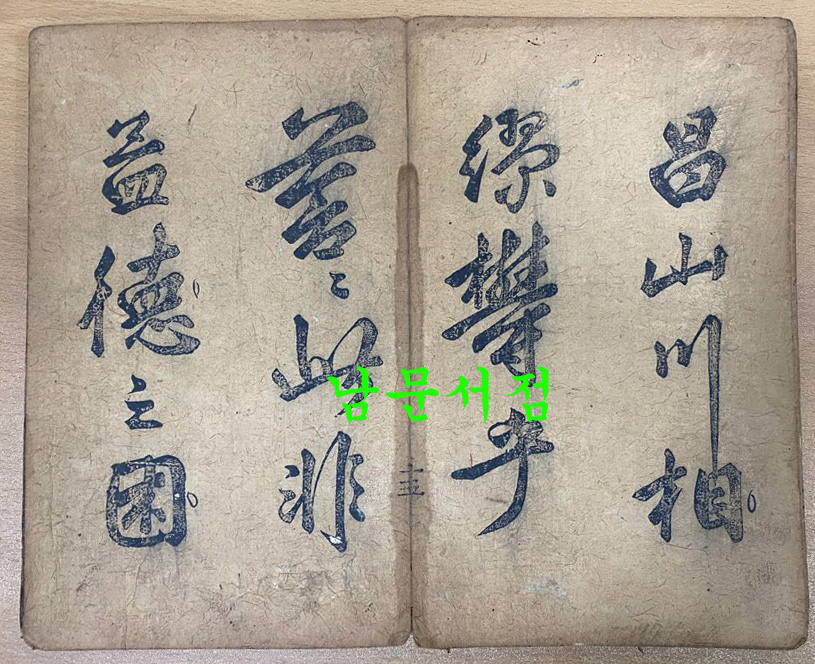 昌山川相
繆欝乎
蒼〻此非
孟德之困
남문서점